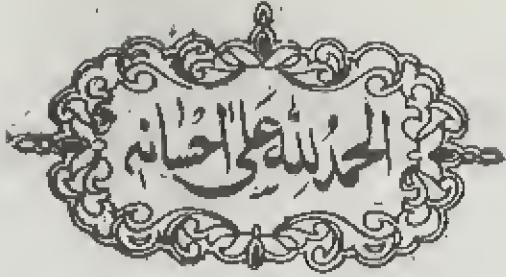 الحمدُ لِلّٰهِ عَلیٰ احْسَانِہٖ